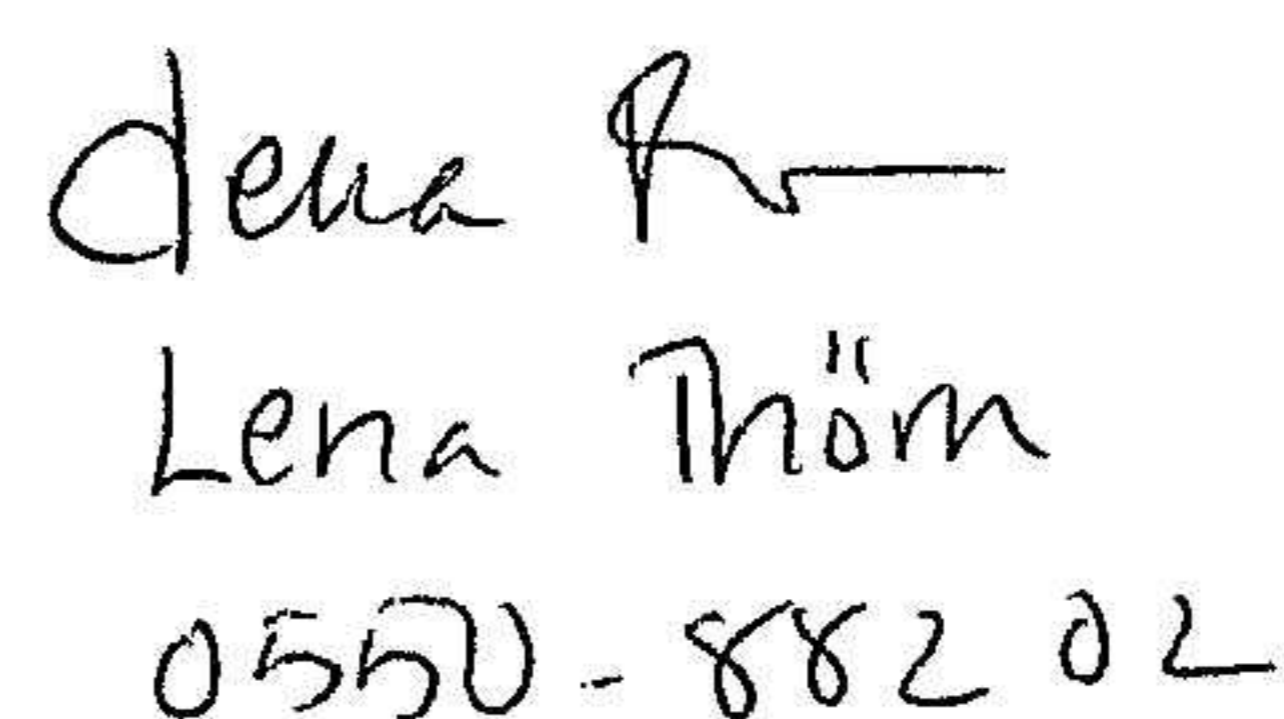 Lena
Lena Thörn
0550-882 02